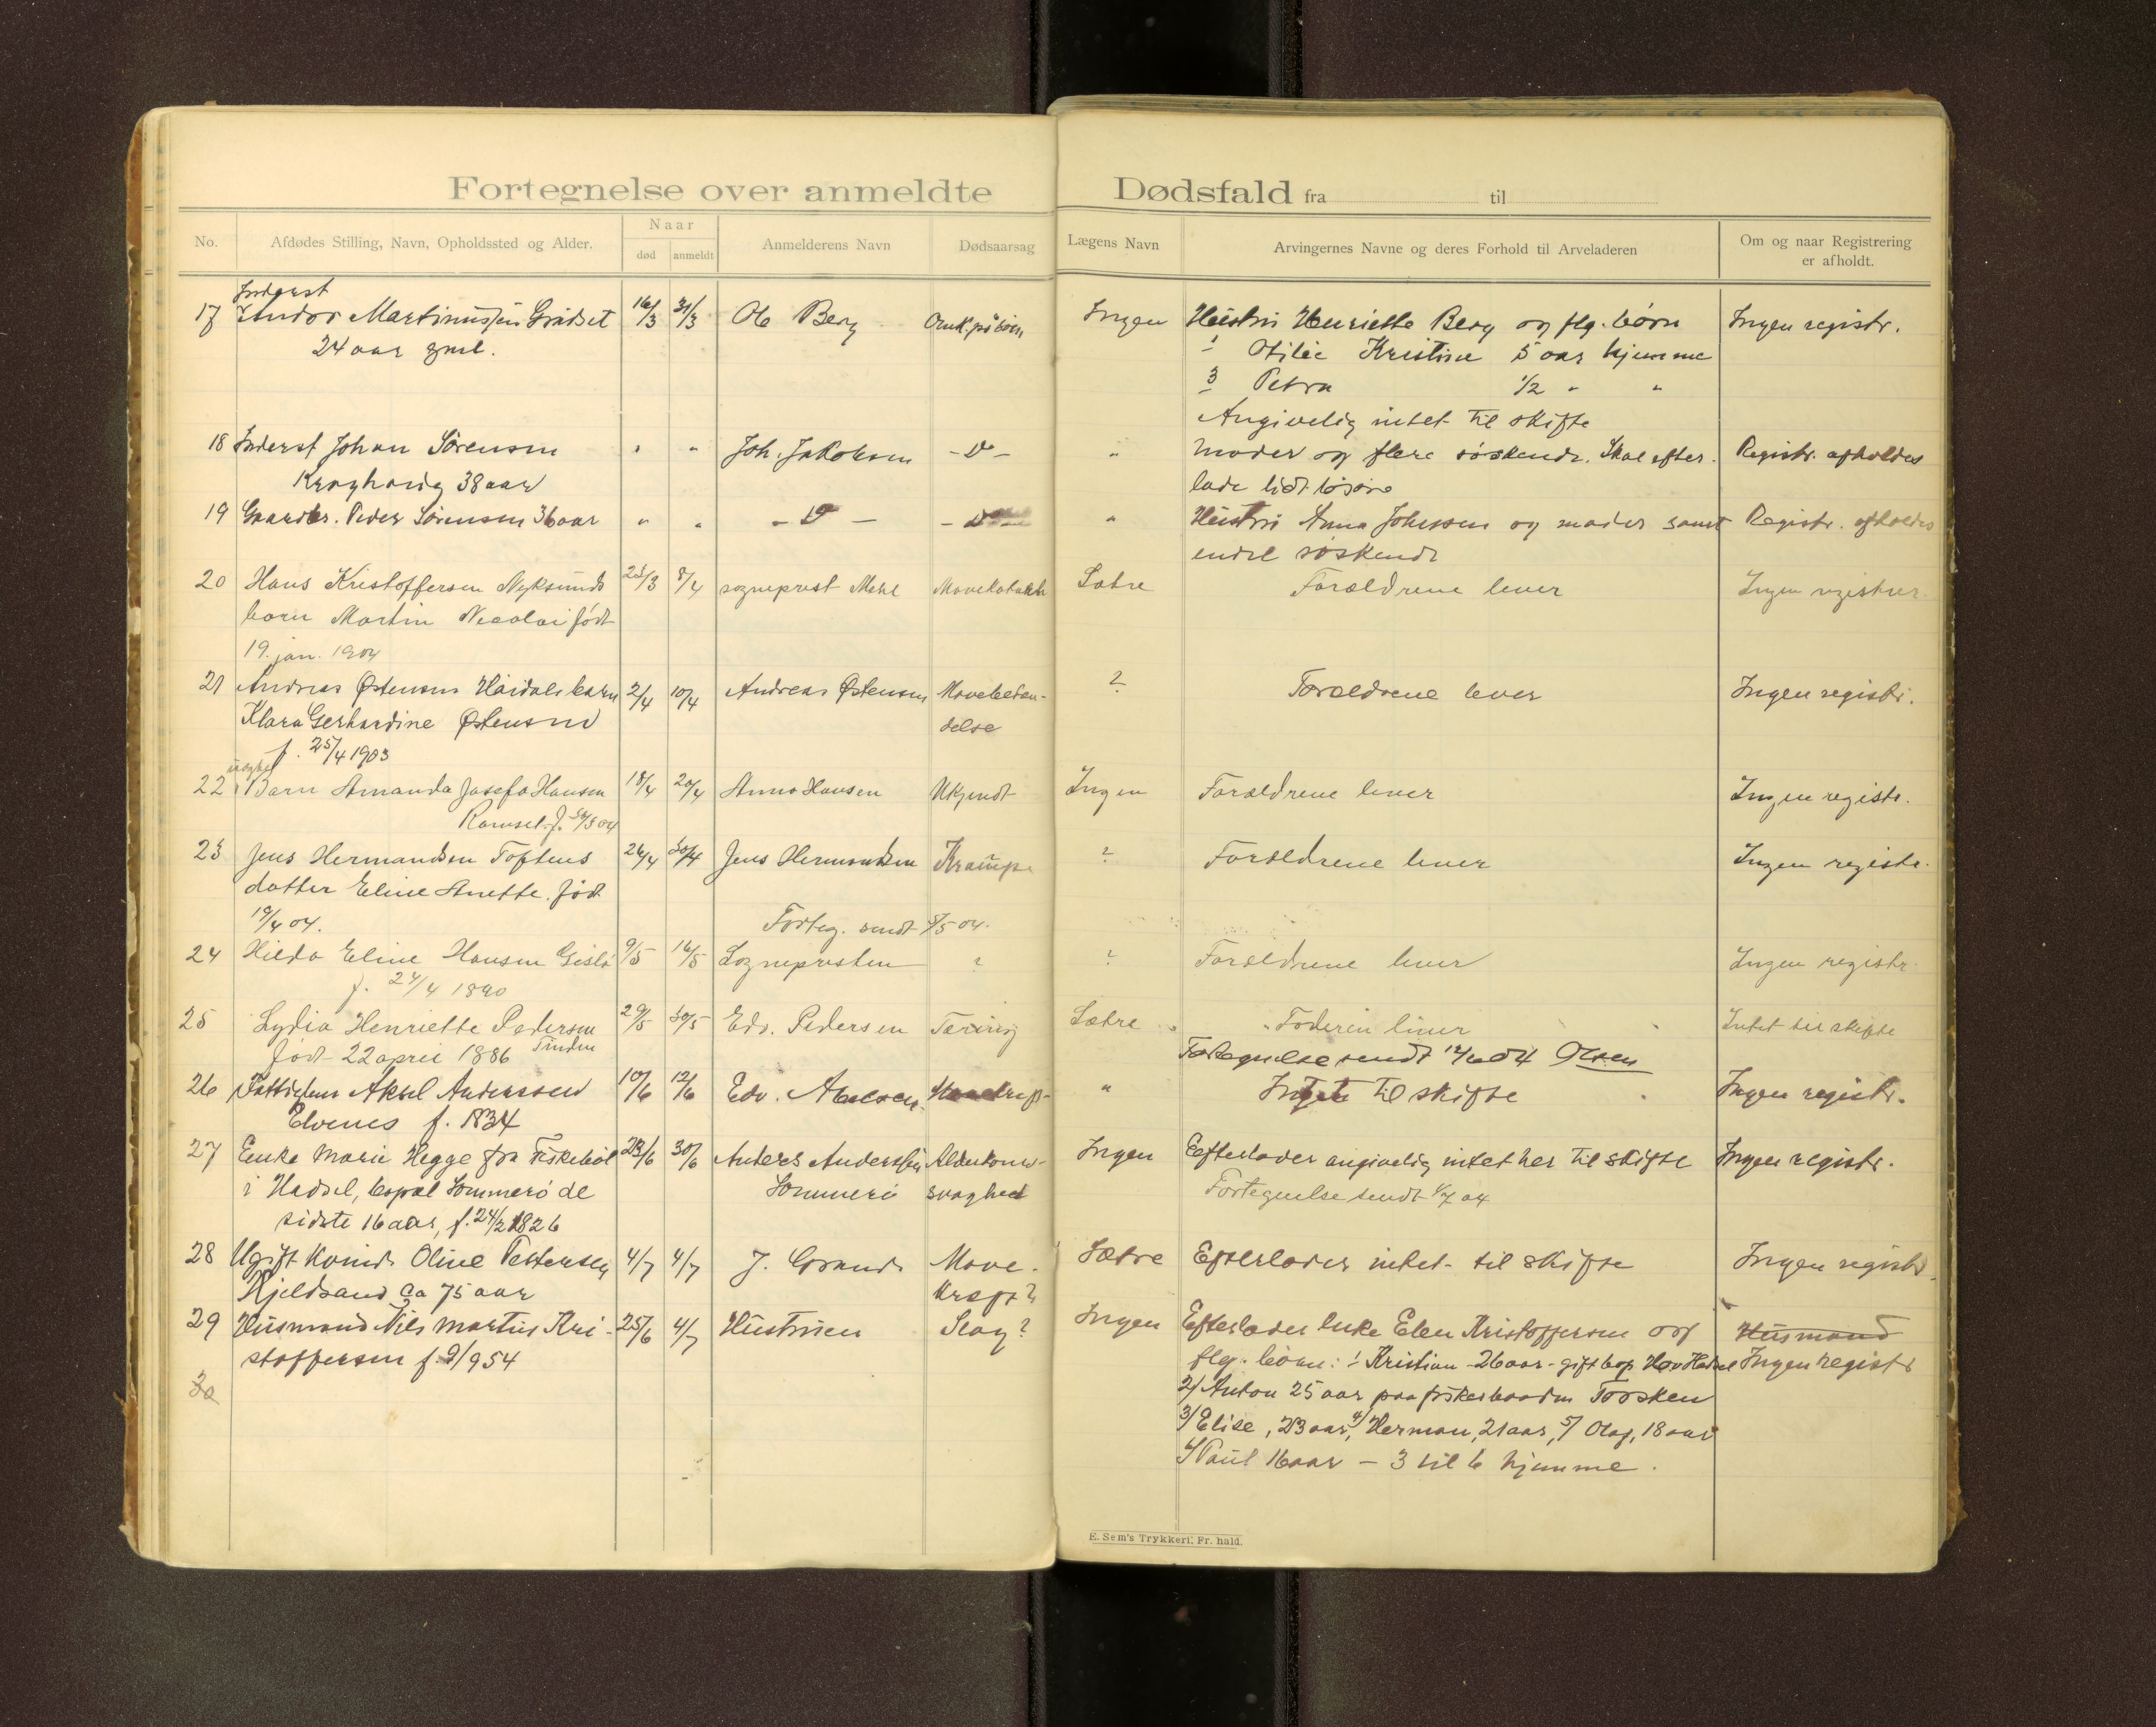 Fortegnelse over anmeldte Dødsfald fra til
No. Afdødes Stilling, Navn, Opholdssted og Alder. Naar død anmeldt Anmelderens Navn Dødsaarsag Lægens Navn Arvingernes Navne og deres Forhold til Arveladeren Om og naar Registrering er afholdt.
Inderst
17 Andor Martinussen 16/3 31/3 Ole Berg Omk. på søen Ingen Hustru Henriette Berg og flg. børn Ingen registr.
24 aar gml. 1 Otilie Kristine 5 aar hjemme
3 Petra 1/2 " "
Angivelig intet til skifte
18 Inderst Johan Sørensen " " Joh. Jakobsen - D - " Moder og flere søskende. Skal efter- Registr. afholdes
38 aar lade lidt løsøre
19 Gaardbr. Peder Sørensen 36 aar " " - D - - D - " Hustru Anna Johnsen og moder samt Registr. afholdes
endel søskende
20 Hans Kristoffersen Nyksunds 23/3 8/4 sogneprest Mavekatarrh Sætre Forældrene lever Ingen registrer.
barn Martin Nicolai født
19. jan. 1904
21 Andreas Østensens barn 2/4 10/4 Andreas Østensen Mavebetæn- ? Forældrene lever Ingen registr.
Klara Gerhardine Østensen delse
f. 25/4 1903
uægte
22 Barn Amanda Josefa Hansen 18/4 20/4 Anna Hansen Ukjendt Ingen Forældrene lever Ingen registr.
Ramset f. 04
23 Jens Hermandsen Toftens 26/4 30/4 Jens Hermandsen Krampe ? Forældrene lever Ingen registr.
datter Eline Anette. født
19/4 04. Forteg. sendt 04.
24 Hilda Eline Hansen Gislø 9/5 16/5 Sognepresten ? ? Forældrene lever Ingen registr.
f. 27/4 1890
25 Lydia Henriette Pedersen 29/5 30/5 Edv. Pedersen Tæring Sætre Faderen lever Intet til skifte
født 22 april 1886 Tinden Fortegnelse sendt 12/6 04 Olsen
26 Fattiglem Aksel Anderssen 10/6 12/6 Edv. " Intet til skifte Ingen registr.
Elvenes f. 1834
27 Enke Marie Hegge fra Fiskebøl 23/6 30/6 Anders Anderssen Alderdoms- Ingen Efterlader angivelig intet her til skifte Ingen registr.
i Hadsel, bopæl Sommerø de Sommerø svaghed Fortegnelse sendt 1/7 04
sidste 16 aar, f. 24/2 1826
28 Ugift kvinde Oline Pettersen 4/7 4/7 J. Grande Mave- Sætre Efterlader intet til skifte Ingen registr.
Kjeldsand ca 75 aar kræft?
29 Husmand Nils Martin Kri- 25/6 4/7 Hustruen Slag? Ingen Efterlader enke Elen Kristoffersen og Husmand
stoffersen f. 9/9 54 flg. børn: 1 Kristian 26 aar - gift bop. Hov Hadsel Ingen registr
30 2/ Anton 25 aar paa fiskerbaaden Torsken
3/ Elise, 23 aar, 4/ Herman, 21 aar, 5/ Olaf, 18 aar
6/ Paul 16 aar - 3 til 6 hjemme.
E. Sem's Trykkeri, Fr. hald.